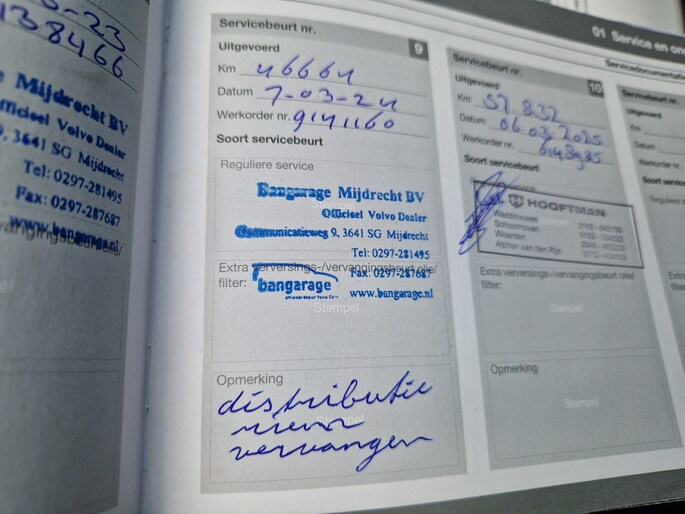 38466
Mijdrecht BV
Officieel Volvo Dealer
9, 3641 SG Mijdrecht
Tel: 0297-281495
Fax: 0297-287687
www.bangarage.nl
Servicebeurt nr.
9
Uitgevoerd
Km 46664
Datum 7-03-24
Werkorder nr. 9141160
Soort servicebeurt
Reguliere service
Bangarage Mijdrecht BV
Officieel Volvo Dealer
Communicatieweg 9, 3641 SG Mijdrecht
Tel: 0297-281495
Extra verversings-/vervangingsbeurt olie/
filter:
Fax: 0297-287687
bangarage
www.bangarage.nl
Stempel
Opmerking
distributie
riem
vervangen
Stempel
01 Service en on
Servicedocumentatie
Servicebeurt nr.
10
Uitgevoerd
Km 52.832
Datum 06 03 2025
Werkorder nr. 6148985
Soort servicebeurt
HOOFTMAN
Waddinxveen
Schoonhoven
Woerden
Alphen aan den Rijn
Extra verversings-/vervangingsbeurt olie/
filter:
Stempel
Opmerking
Stempel
Servicebeurt nr.
Uitgevoerd
Km
Datum
Werkorder nr.
Soort